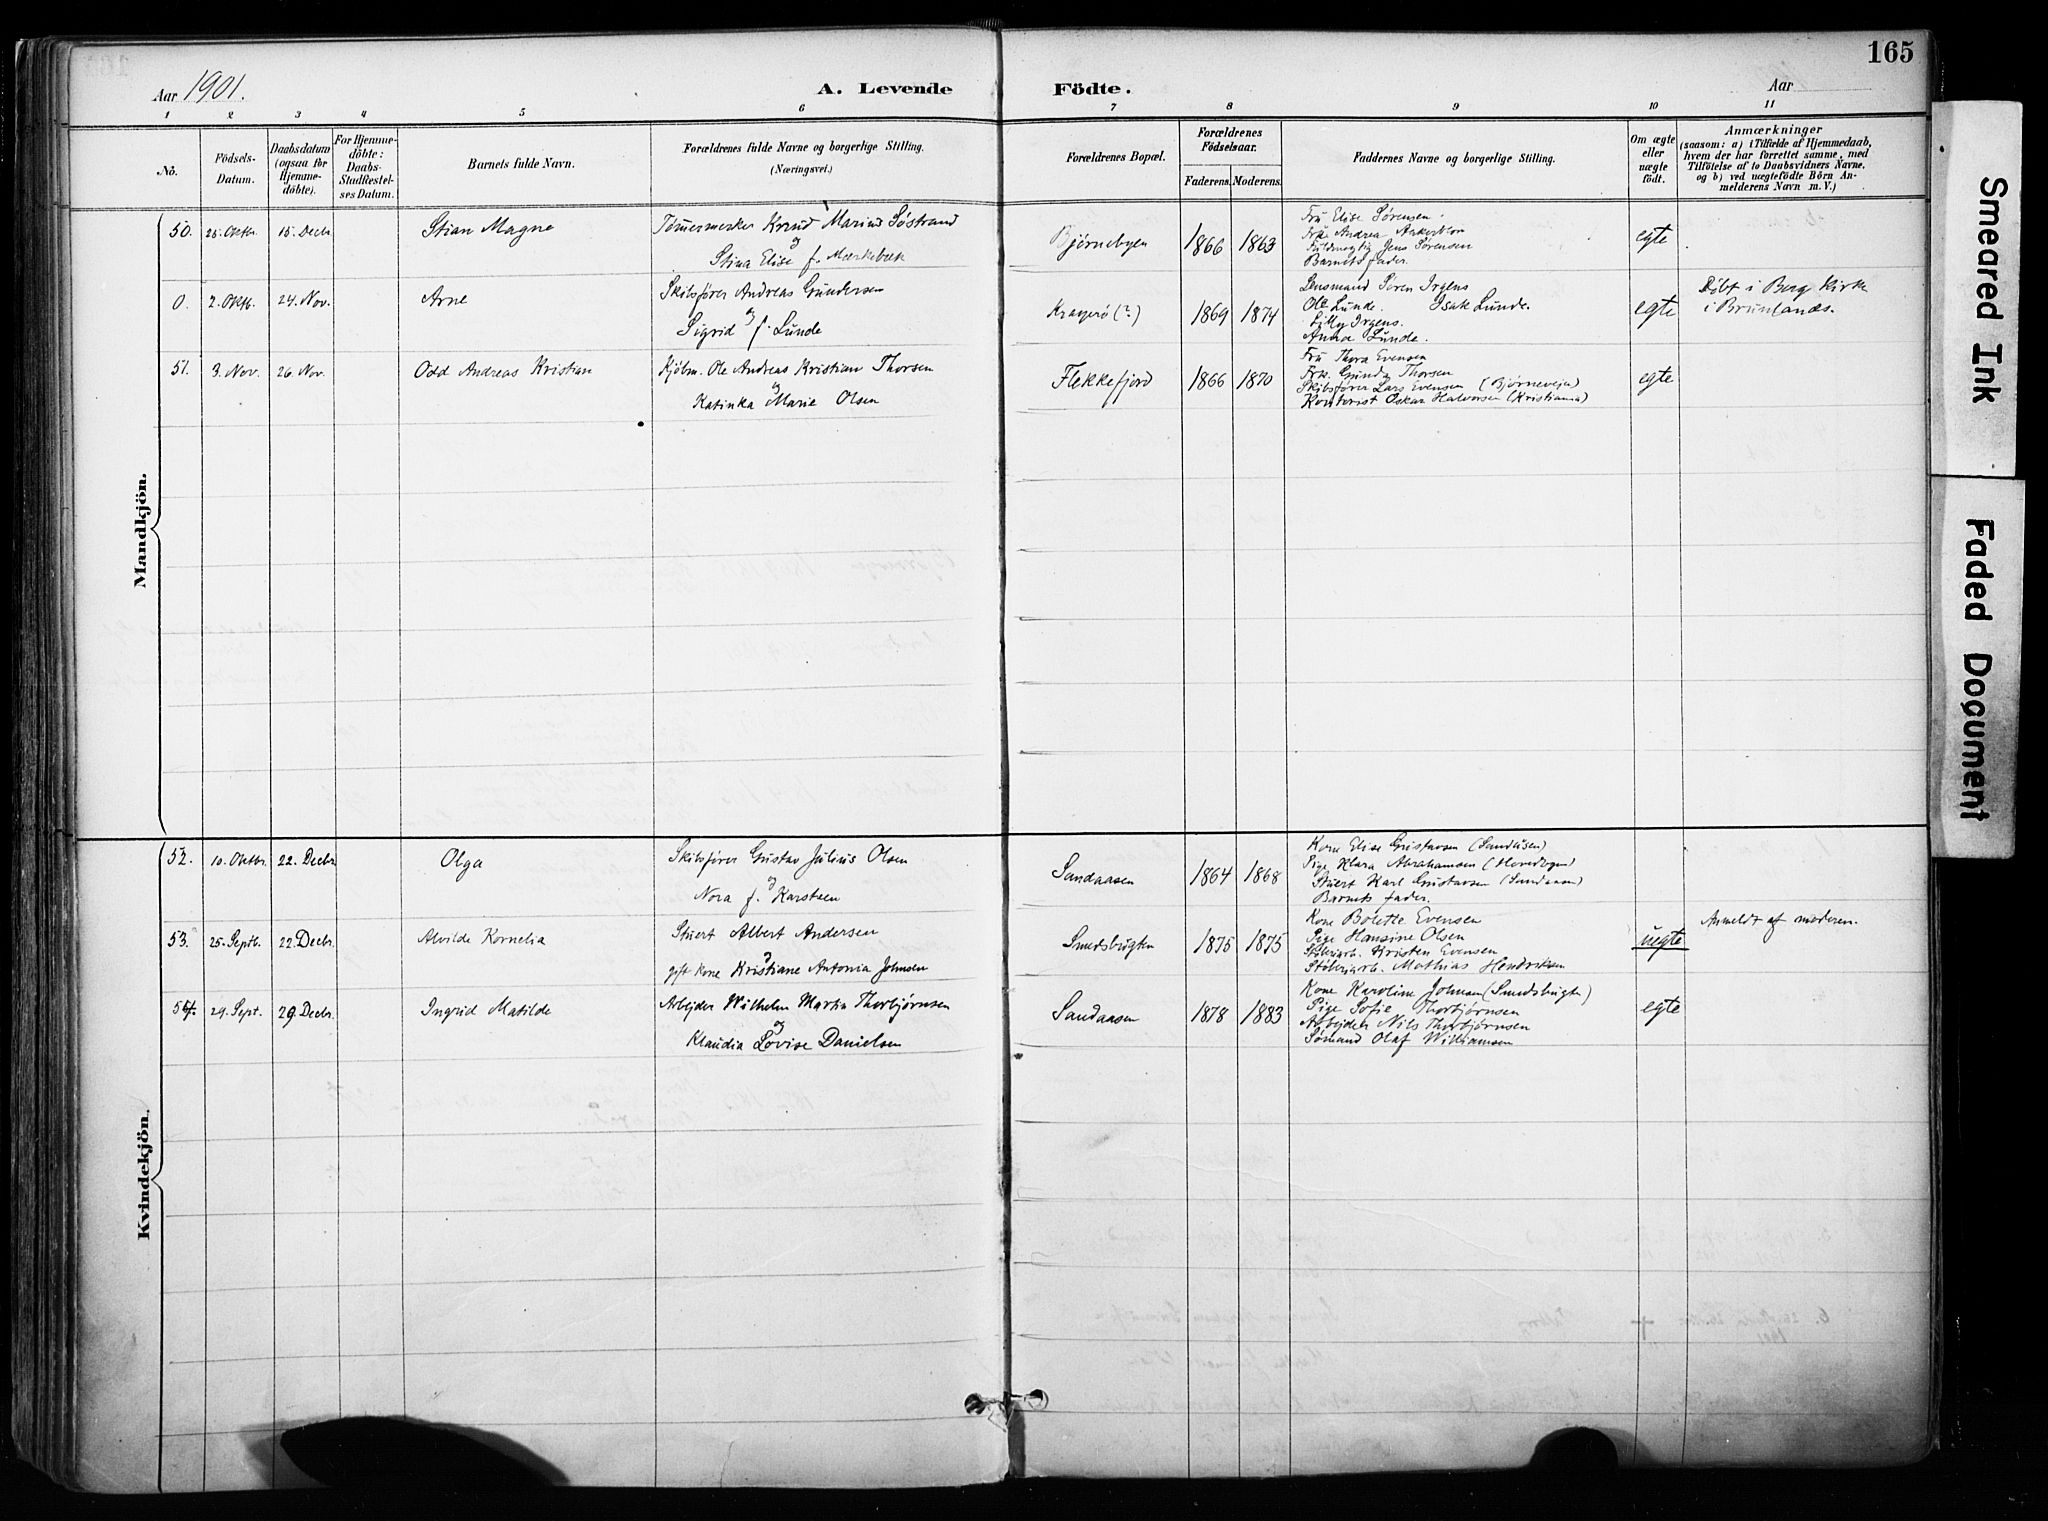 165
Aar 1901.
A. Levende Födte.
Aar
1 2 3 4 5 6 7 8 9 10 11
No.
Födsels-Datum.
Daabsdatum (ogsaa for Hjemmedöbte).
For Hjemmedöbte: Daabs-Stadfestelses Datum.
Barnets fulde Navn.
Forældrenes fulde Navne og borgerlige Stilling.
(Næringsvei.)
Forældrenes Bopæl.
Forældrenes Födselsaar.
Faderens. Moderens.
Faddernes Navne og borgerlige Stilling.
Om ægte eller uægte födt.
Anmærkninger
(saasom: a) i Tilfælde af Hjemmedaab, hvem der har forrettet samme, med Tilföielse af to Daabsvidners Navne. og b) ved uægtefödte Börn Anmelderens Navn m. V.)
Mandkjön.
50. 25. Oktbr. 15. Decbr. Stian Magne
Knud Marius Söstrand
og
Stina Elise f.
Bjørnebyen 1866 1863
Fru Elise Sørensen.
Fru Andrea
Fuldmegtig Jens Sørensen
Barnets fader.
egte
0. 2. Oktb. 24. Nov. Arne
Skibsfører Andreas Gundersen
og
Sigrid f. Lunde
Kragerö (?) 1869 1874
Lensmand Sören Irgens
Ole Lunde. Isak Lunde.
Lilly Irgens.
Anna Lunde.
egte
Döbt i Berg Kirke
i Brunlanes.
51. 3. Nov. 26. Nov. Odd Andreas Kristian
Kjölm. Ole Andreas Kristian Thorsen
og
Katinka Marie Olsen
Flekkefjord 1866 1870
Fru Thora Evensen
Frk. Gunda Thorsen
Skibsfører Lars Evensen (Bjørnevejen)
Kontorist Oskar Halvorsen (Kristiania)
egte
Kvindekjön.
52. 10. Oktbr. 22. Decbr. Olga
Skibsfører Gustav Julius Olsen
og
Nora f. Karstsen
Sandaasen 1864 1868
Kone Elise Gustavsen (Sandåsen)
Pige Klara Abrahamsen
Stuert Karl Gustavsen (Sandaasen)
Barnets fader.
53. 25. Septb. 22. Decbr. Alvilde Kornelia
Stuert Albert Andersen
og
gift kone Kristiane Antonia Johnsen
Smedsbugten 1875 1875
Kone Bolette Evensen
Pige Hansine Olsen
Støberiarb. Kristen Evensen
Støberiarb. Mathias Hendriksen
uegte
Anmeldt af moderen.
54. 29. Sept. 29. Decbr. Ingrid Matilde
Arbejder Wilhelm Martin Thorbjørnsen
og
Klaudia Lovise Danielsen
Sandaasen 1878 1883
Kone Karoline Johnsen (Smedsbugten)
Pige Sofie Thorbjørnsen
Arbejder Nils Thorbjørnsen
Sømand Olaf Williamsen
egte
Smeared Ink
Faded Document